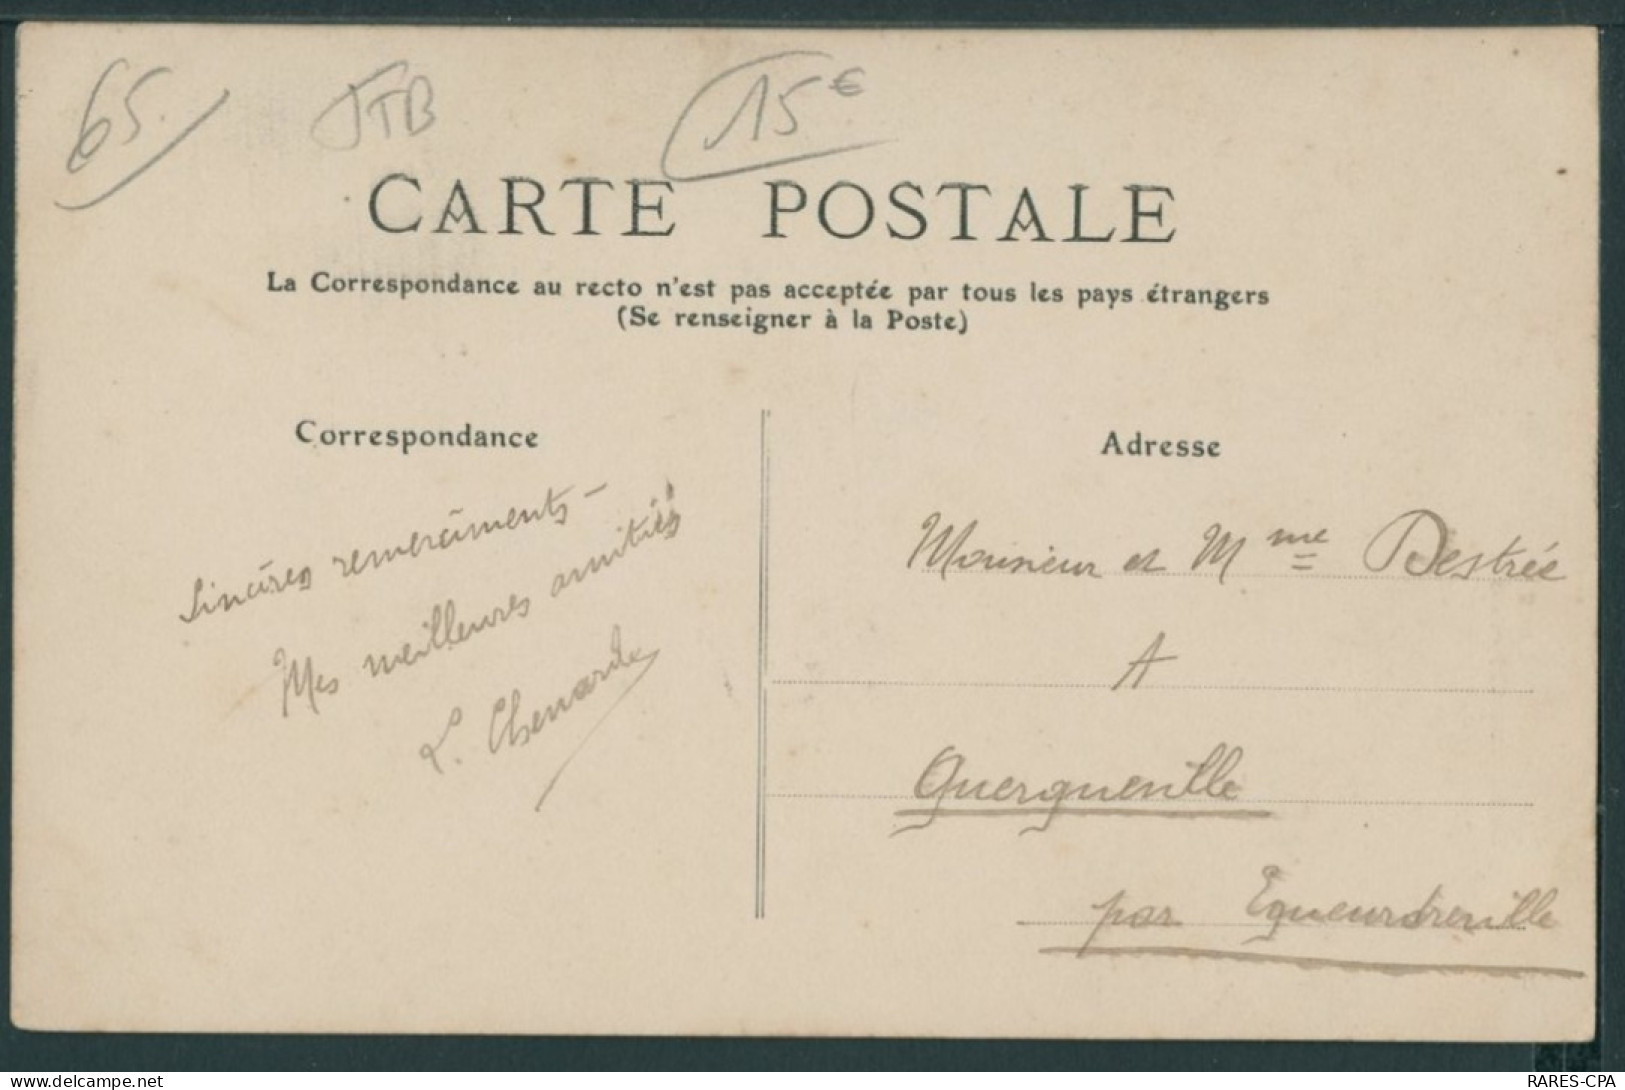 65.
JTB
15€
CARTE POSTALE
La Correspondance au recto n'est pas acceptée par tous les pays étrangers
(Se renseigner à la Poste)
Correspondance
Sincères remerciments –
Mes meilleures amitiés
L.
Adresse
Monsieur et Mme Destrée
A
Querqueville
par Equeurdreville
delcampe.net
RARES-CPA